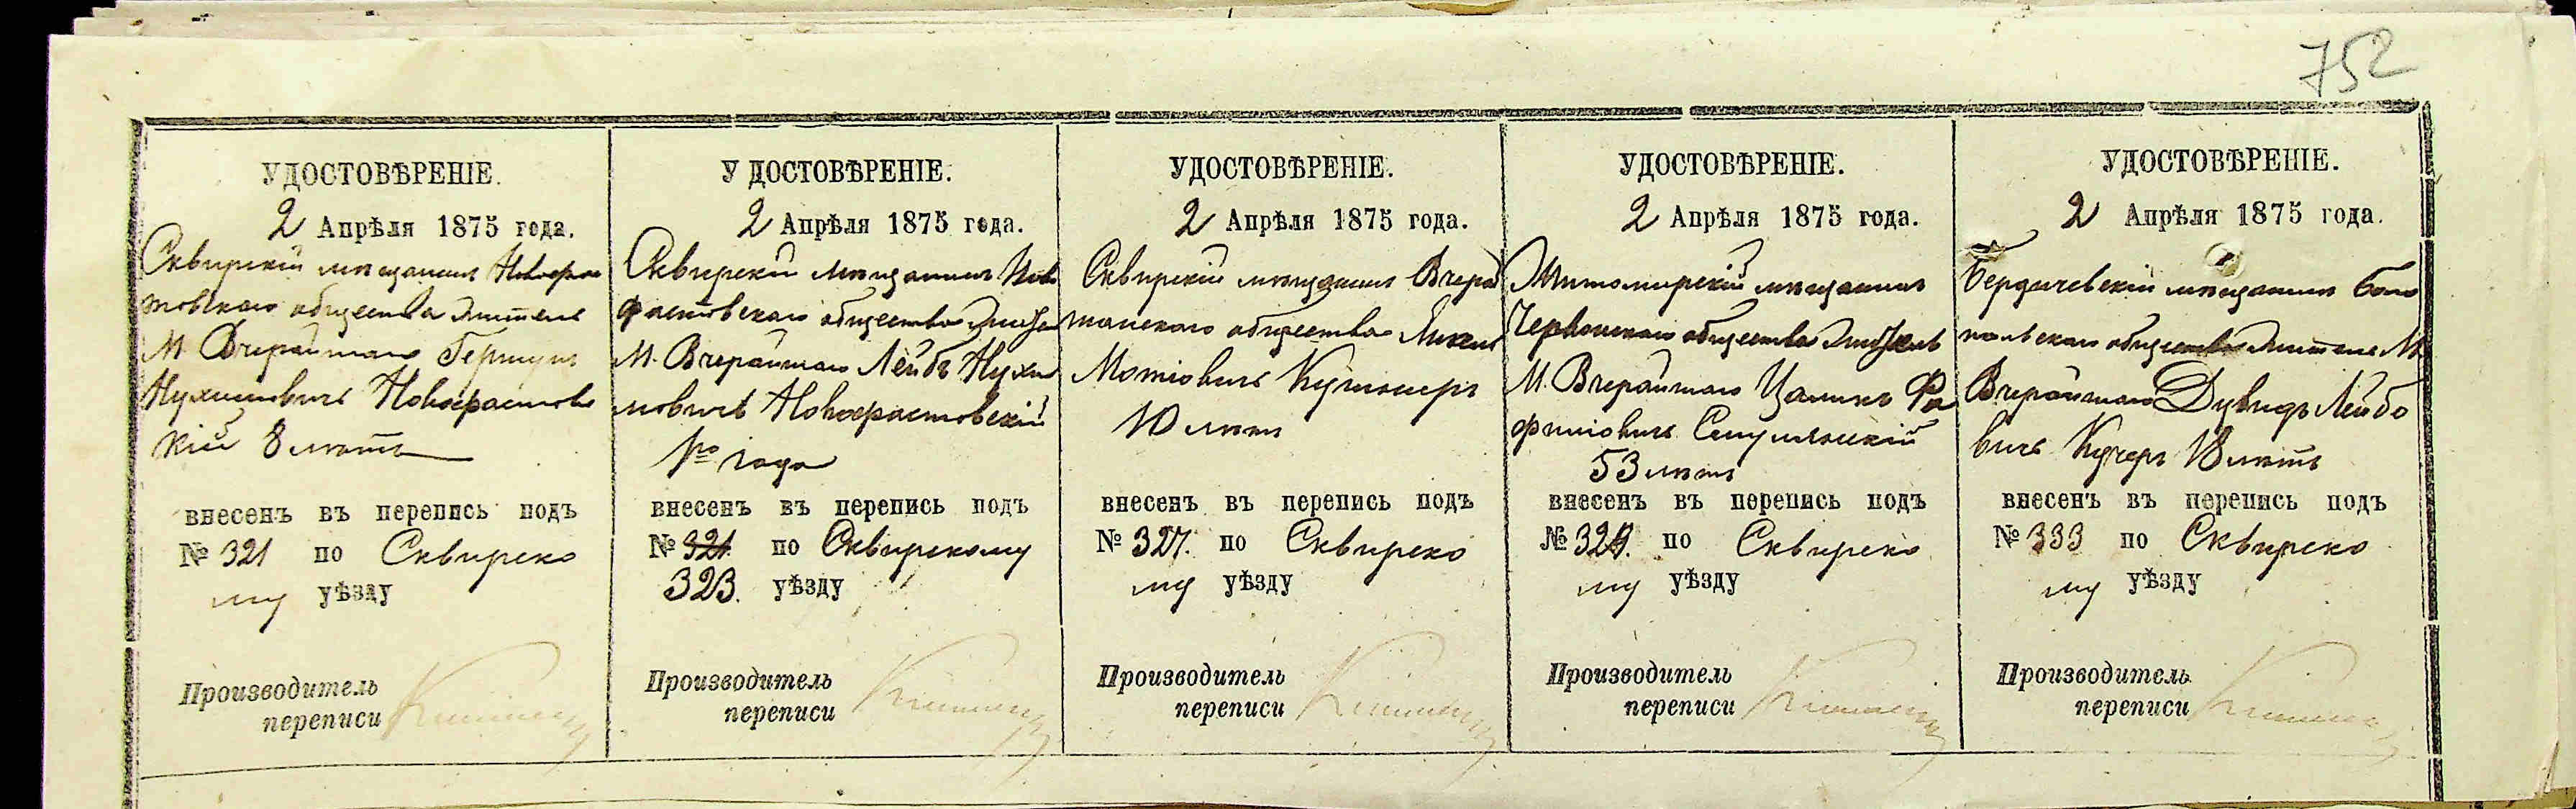 752
УДОСТОВѢРЕНІЕ.
2 Апрѣля 1875 года.
Сквирскій мѣщанинъ Новофас
товскаго общества житель
М. Вчерайшаго Гершун
Нухимовичъ Новофастовс
кій 8 лѣтъ
внесенъ въ перепись подъ
№ 321 по Сквирско
му уѣзду
Производитель
переписи
УДОСТОВѢРЕНІЕ.
2 Апрѣля 1875 года.
Сквирскій мѣщанинъ Ново
фастовскаго общества
М. Вчерайшаго Лейбъ Нухи
мовичъ Новофастовскій
1го года
внесенъ въ перепись подъ
№ 321. по Сквирскому
323. уѣзду
Производитель
переписи
УДОСТОВѢРЕНІЕ.
2 Апрѣля 1875 года.
Сквирскій мѣщанинъ Вчерай
шанскаго общества
Мотіовичъ Кушниръ
10 лѣтъ
внесенъ въ перепись подъ
№ 327. по Сквирско
му уѣзду
Производитель
переписи
УДОСТОВѢРЕНІЕ.
2 Апрѣля 1875 года.
Житомирскій мѣщанинъ
Червонскаго общества житель
М. Вчерайшаго Цаликъ Фа
53 лѣтъ
внесенъ въ перепись подъ
№ 329. по Сквирско
му уѣзду
Производитель
переписи
УДОСТОВѢРЕНІЕ.
2 Апрѣля 1875 года.
Бердичевскій мѣщанинъ Бѣло
польскаго общества житель М.
Вчерайшаго Дувидъ Лейбо
вичъ Кучеръ 18 лѣтъ
внесенъ въ перепись подъ
№ 333 по Сквирско
му уѣзду
Производитель
переписи